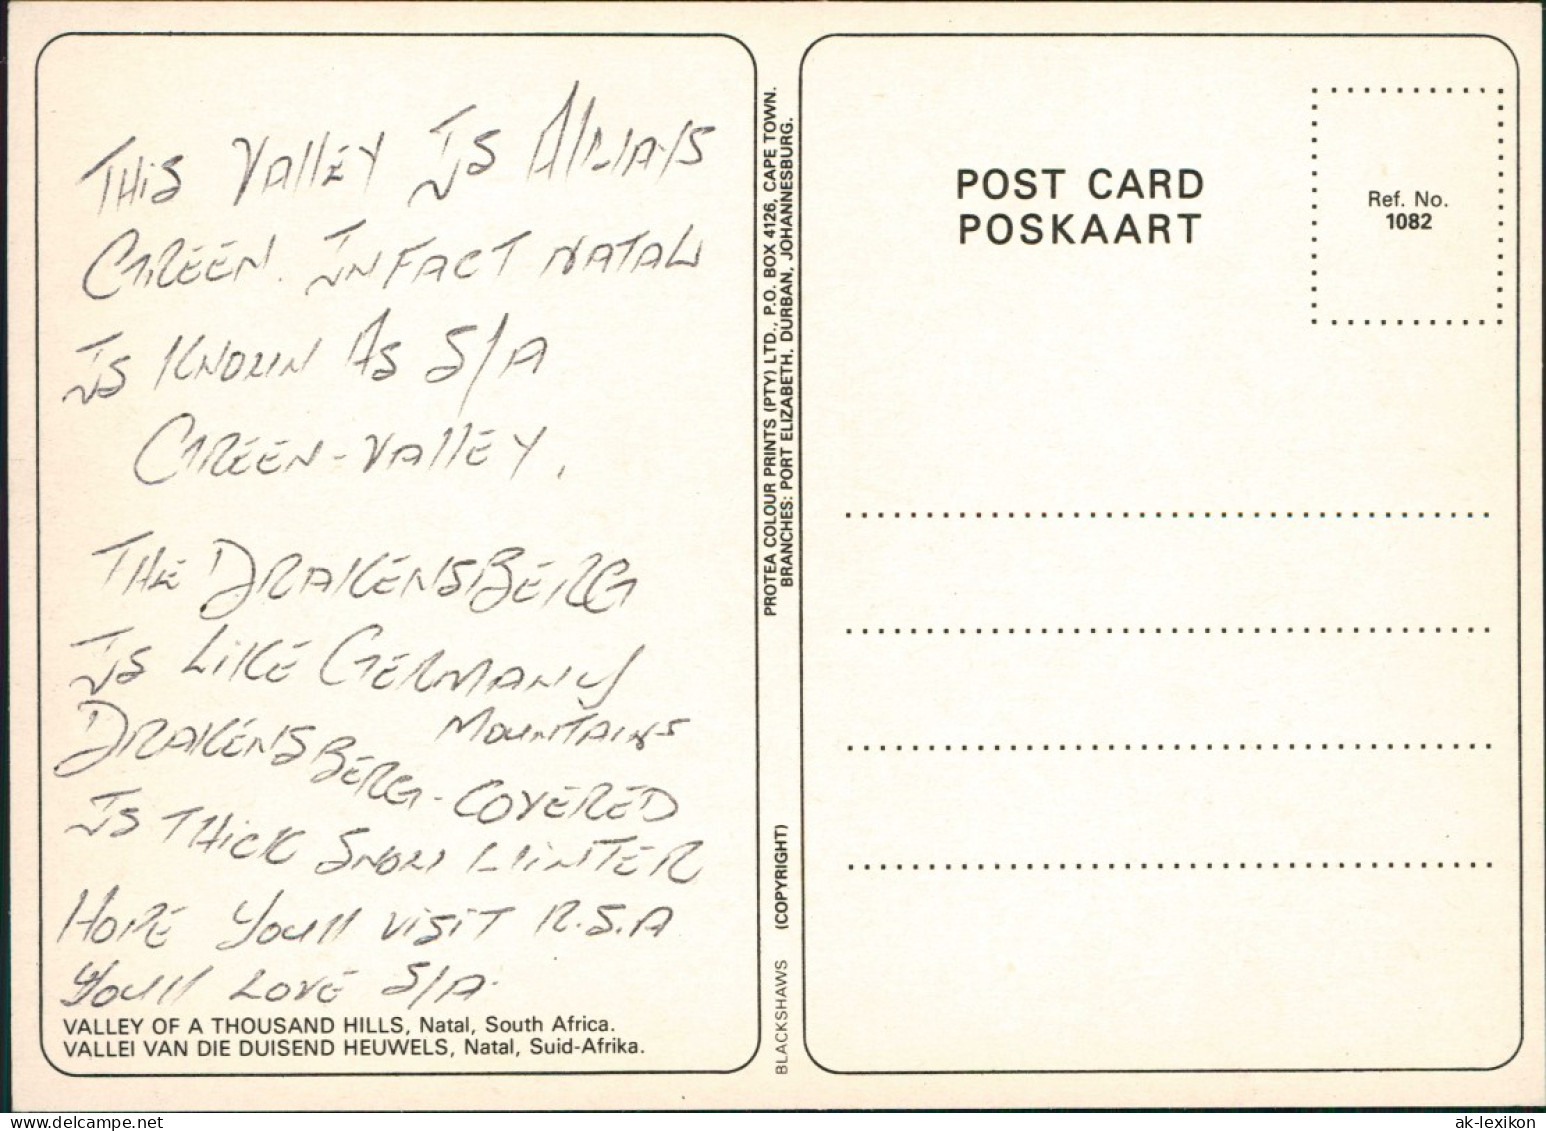 THiS VAllEY IS AlWAYS
GREEN. INFACT NATAL
IS KNOWN AS S/A
GREEN-VAllEY.
THE DRAKENSBERG
IS LiKE GERMANY
MOUNTAINS
DRAKENSBERG-COVERED
IS THiCK SNOW WiNTER
HOPE YOUll ViSiT R.S.A
YOUll LOVE S/A.
VALLEY OF A THOUSAND HILLS, Natal, South Africa.
VALLEI VAN DIE DUISEND HEUWELS, Natal, Suid-Afrika.
PROTEA COLOUR PRINTS (PTY) LTD., P.O. BOX 4126, CAPE TOWN.
BRANCHES: PORT ELIZABETH. DURBAN, JOHANNESBURG.
BLACKSHAWS (COPYRIGHT)
POST CARD
POSKAART
Ref. No.
1082
ak-lexikon